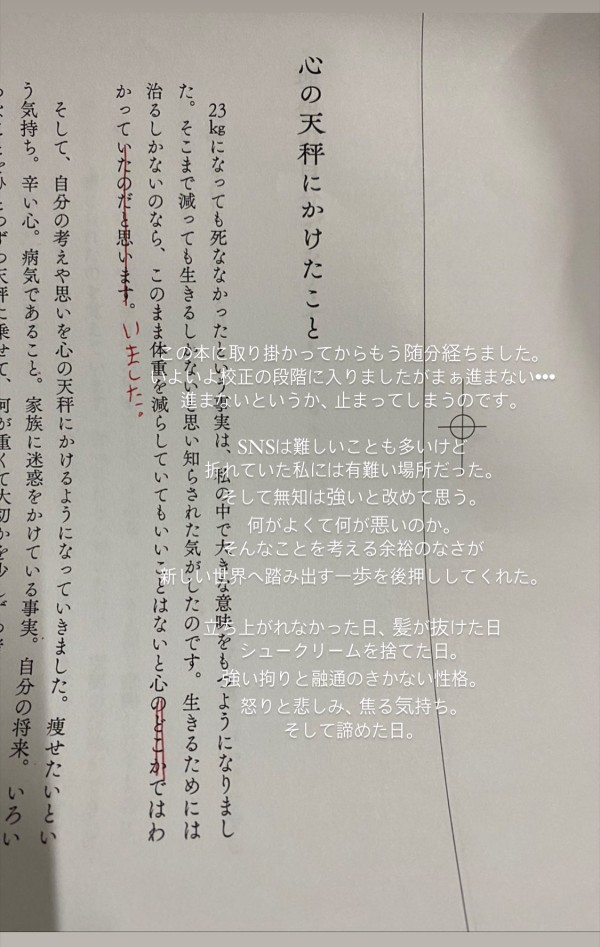 心の天秤にかけたこと
23kgになっても死ななかったという事実は、私の中で大きな意味をもつようになりまし
た。そこまで減っても生きるしかないと思い知らされた気がしたのです。生きるためには
治るしかないのなら、このまま体重を減らしていてもいいことはないと心のどこかではわ
かっていたのだと思います。いました。
そして、自分の考えや思いを心の天秤にかけるようになっていきました。痩せたいとい
う気持ち。辛い心。病気であること。家族に迷惑をかけている事実。自分の将来。いろい
天秤に乗せて、何が重くて大切かを少しずつ
この本に取り掛かってからもう随分経ちました。
いよいよ校正の段階に入りましたがまぁ進まない•••
進まないというか、止まってしまうのです。
SNSは難しいことも多いけど
折れていた私には有難い場所だった。
そして無知は強いと改めて思う。
何がよくて何が悪いのか。
そんなことを考える余裕のなさが
新しい世界へ踏み出す一歩を後押ししてくれた。
立ち上がれなかった日、髪が抜けた日
シュークリームを捨てた日。
強い拘りと融通のきかない性格。
怒りと悲しみ、焦る気持ち。
そして諦めた日。